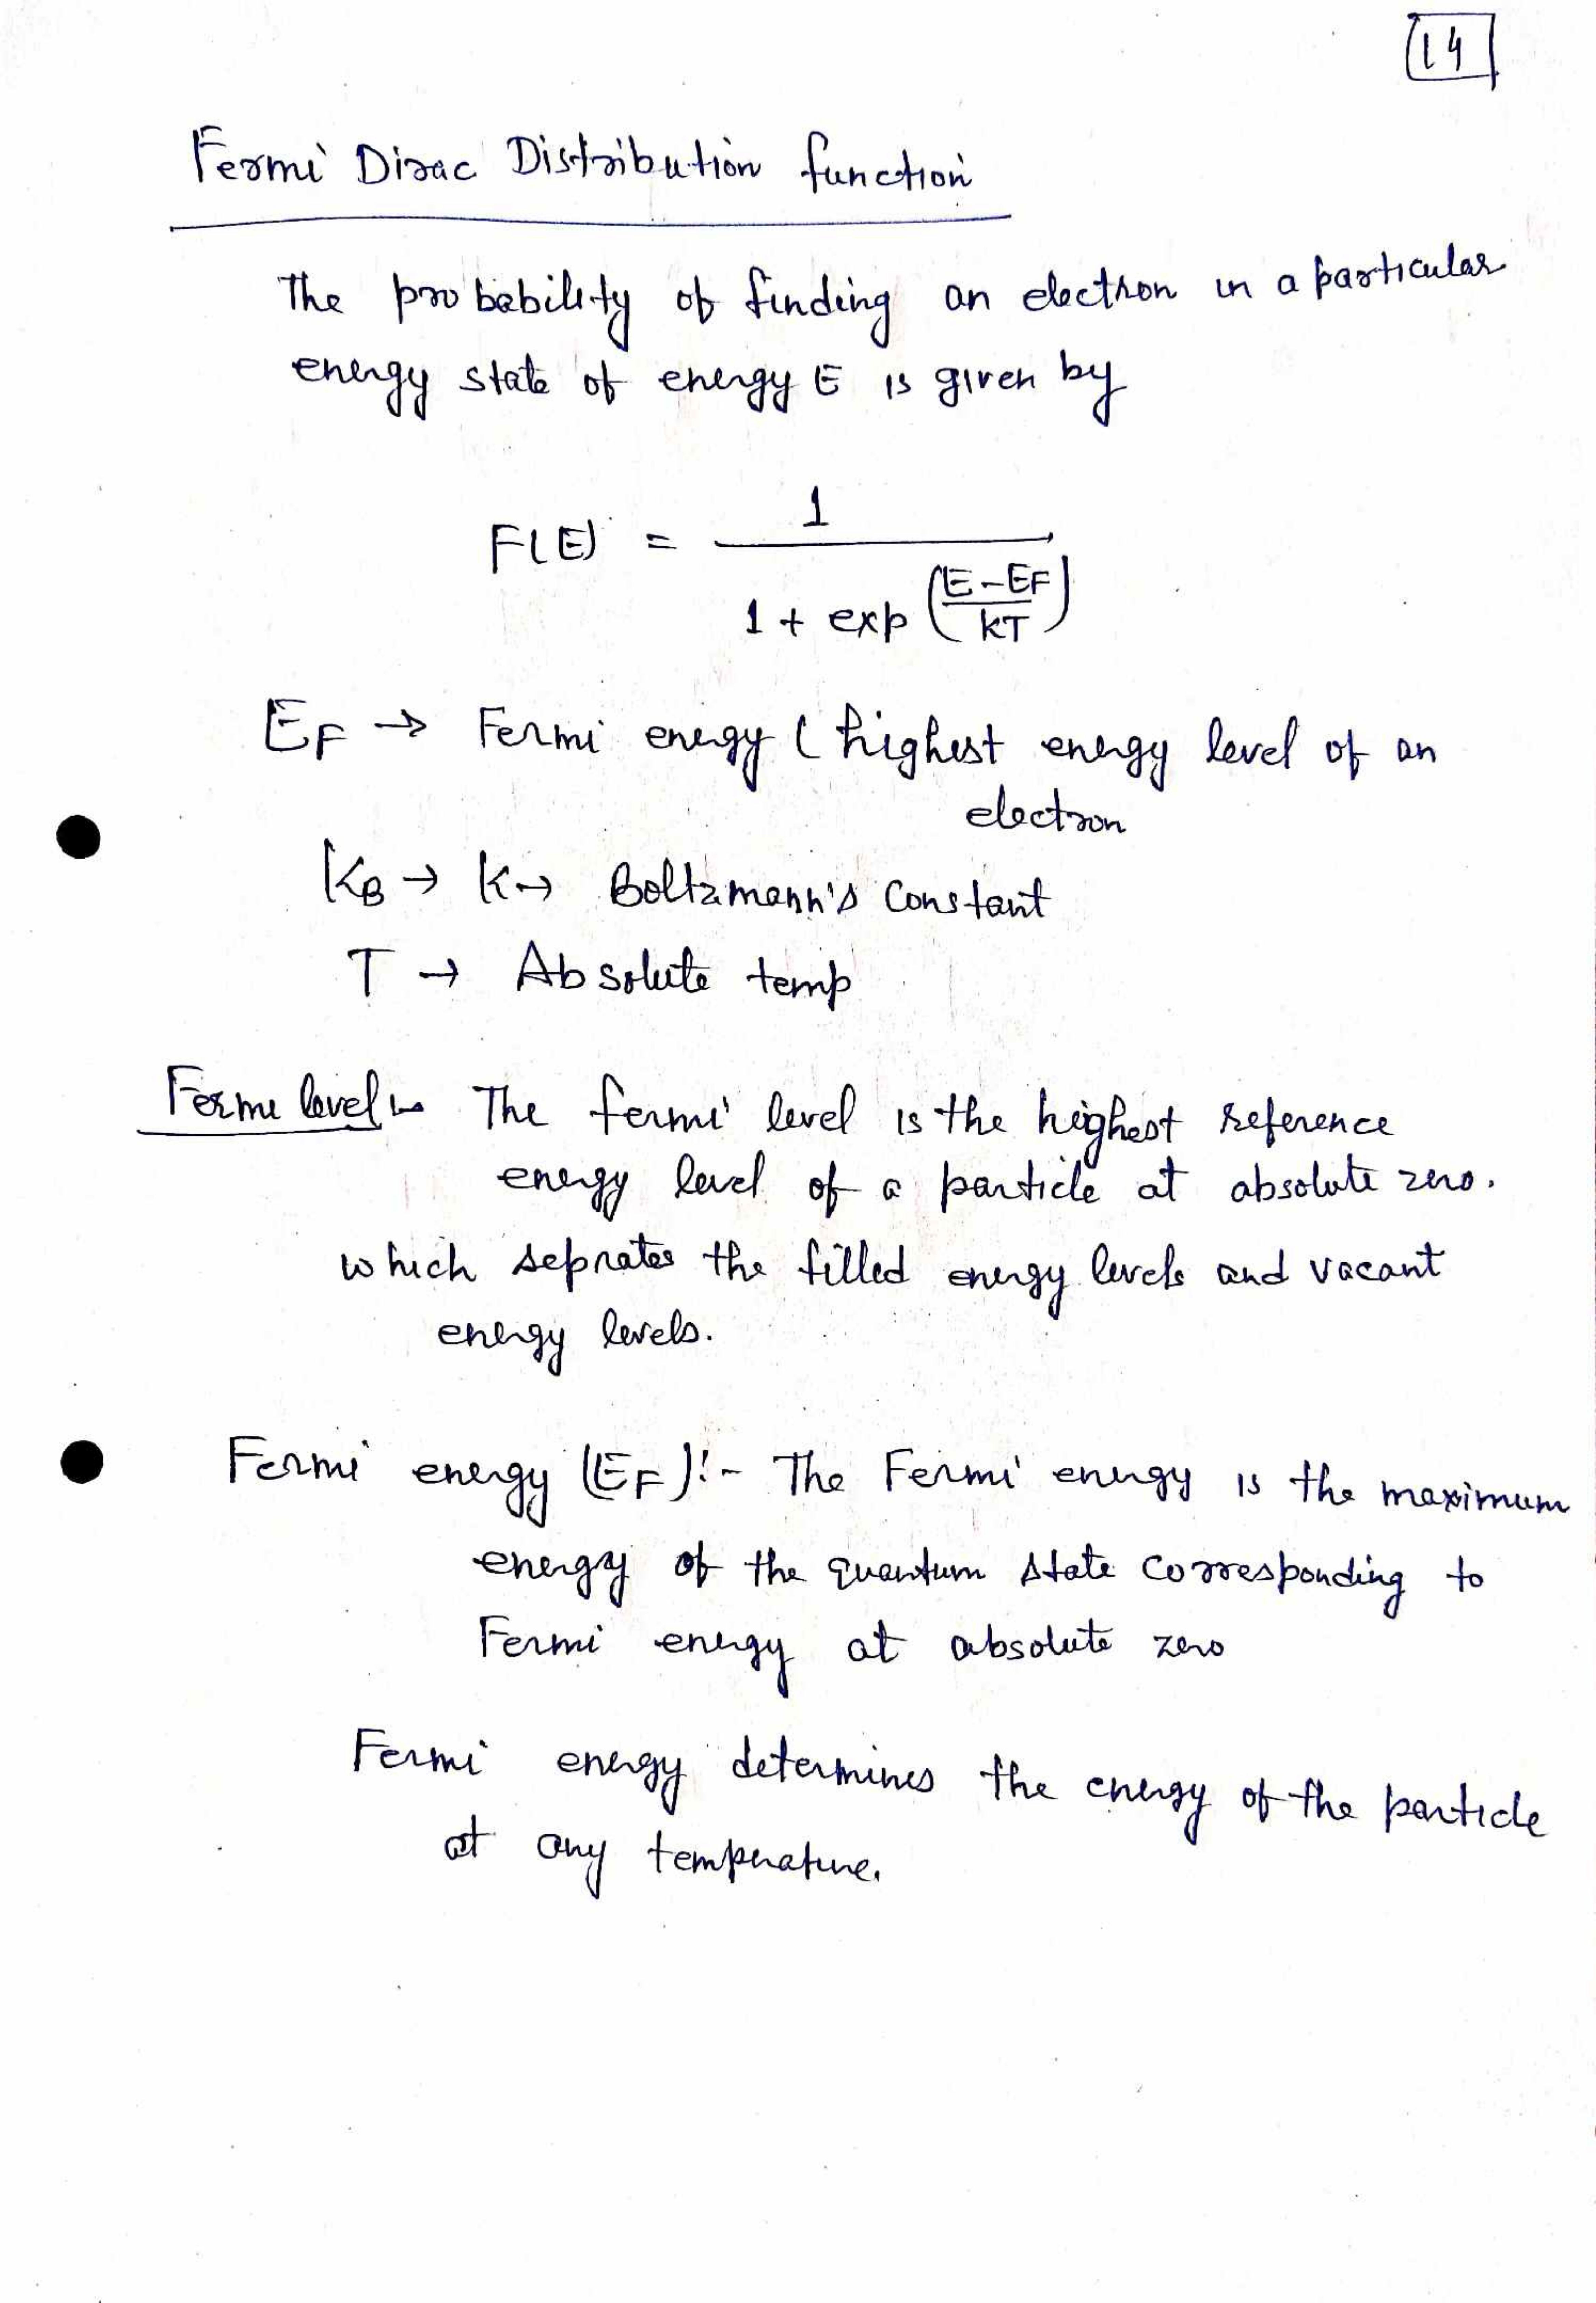 14
Fermi Dirac Distribution function
The probability of finding an electron in a particular
energy state of energy E is given by
F(E) = 1 / 1 + exp ((E-EF)/kT)
EF → Fermi energy ( highest energy level of an
electron
KB → K → Boltzmann's Constant
T → Absolute temp
Fermi level :- The fermi level is the highest reference
energy level of a particle at absolute zero.
which seprates the filled energy levels and vacant
energy levels.
Fermi energy (EF) :- The Fermi energy is the maximum
energy of the quantum state corresponding to
Fermi energy at absolute zero
Fermi energy determines the energy of the particle
at any temperature.